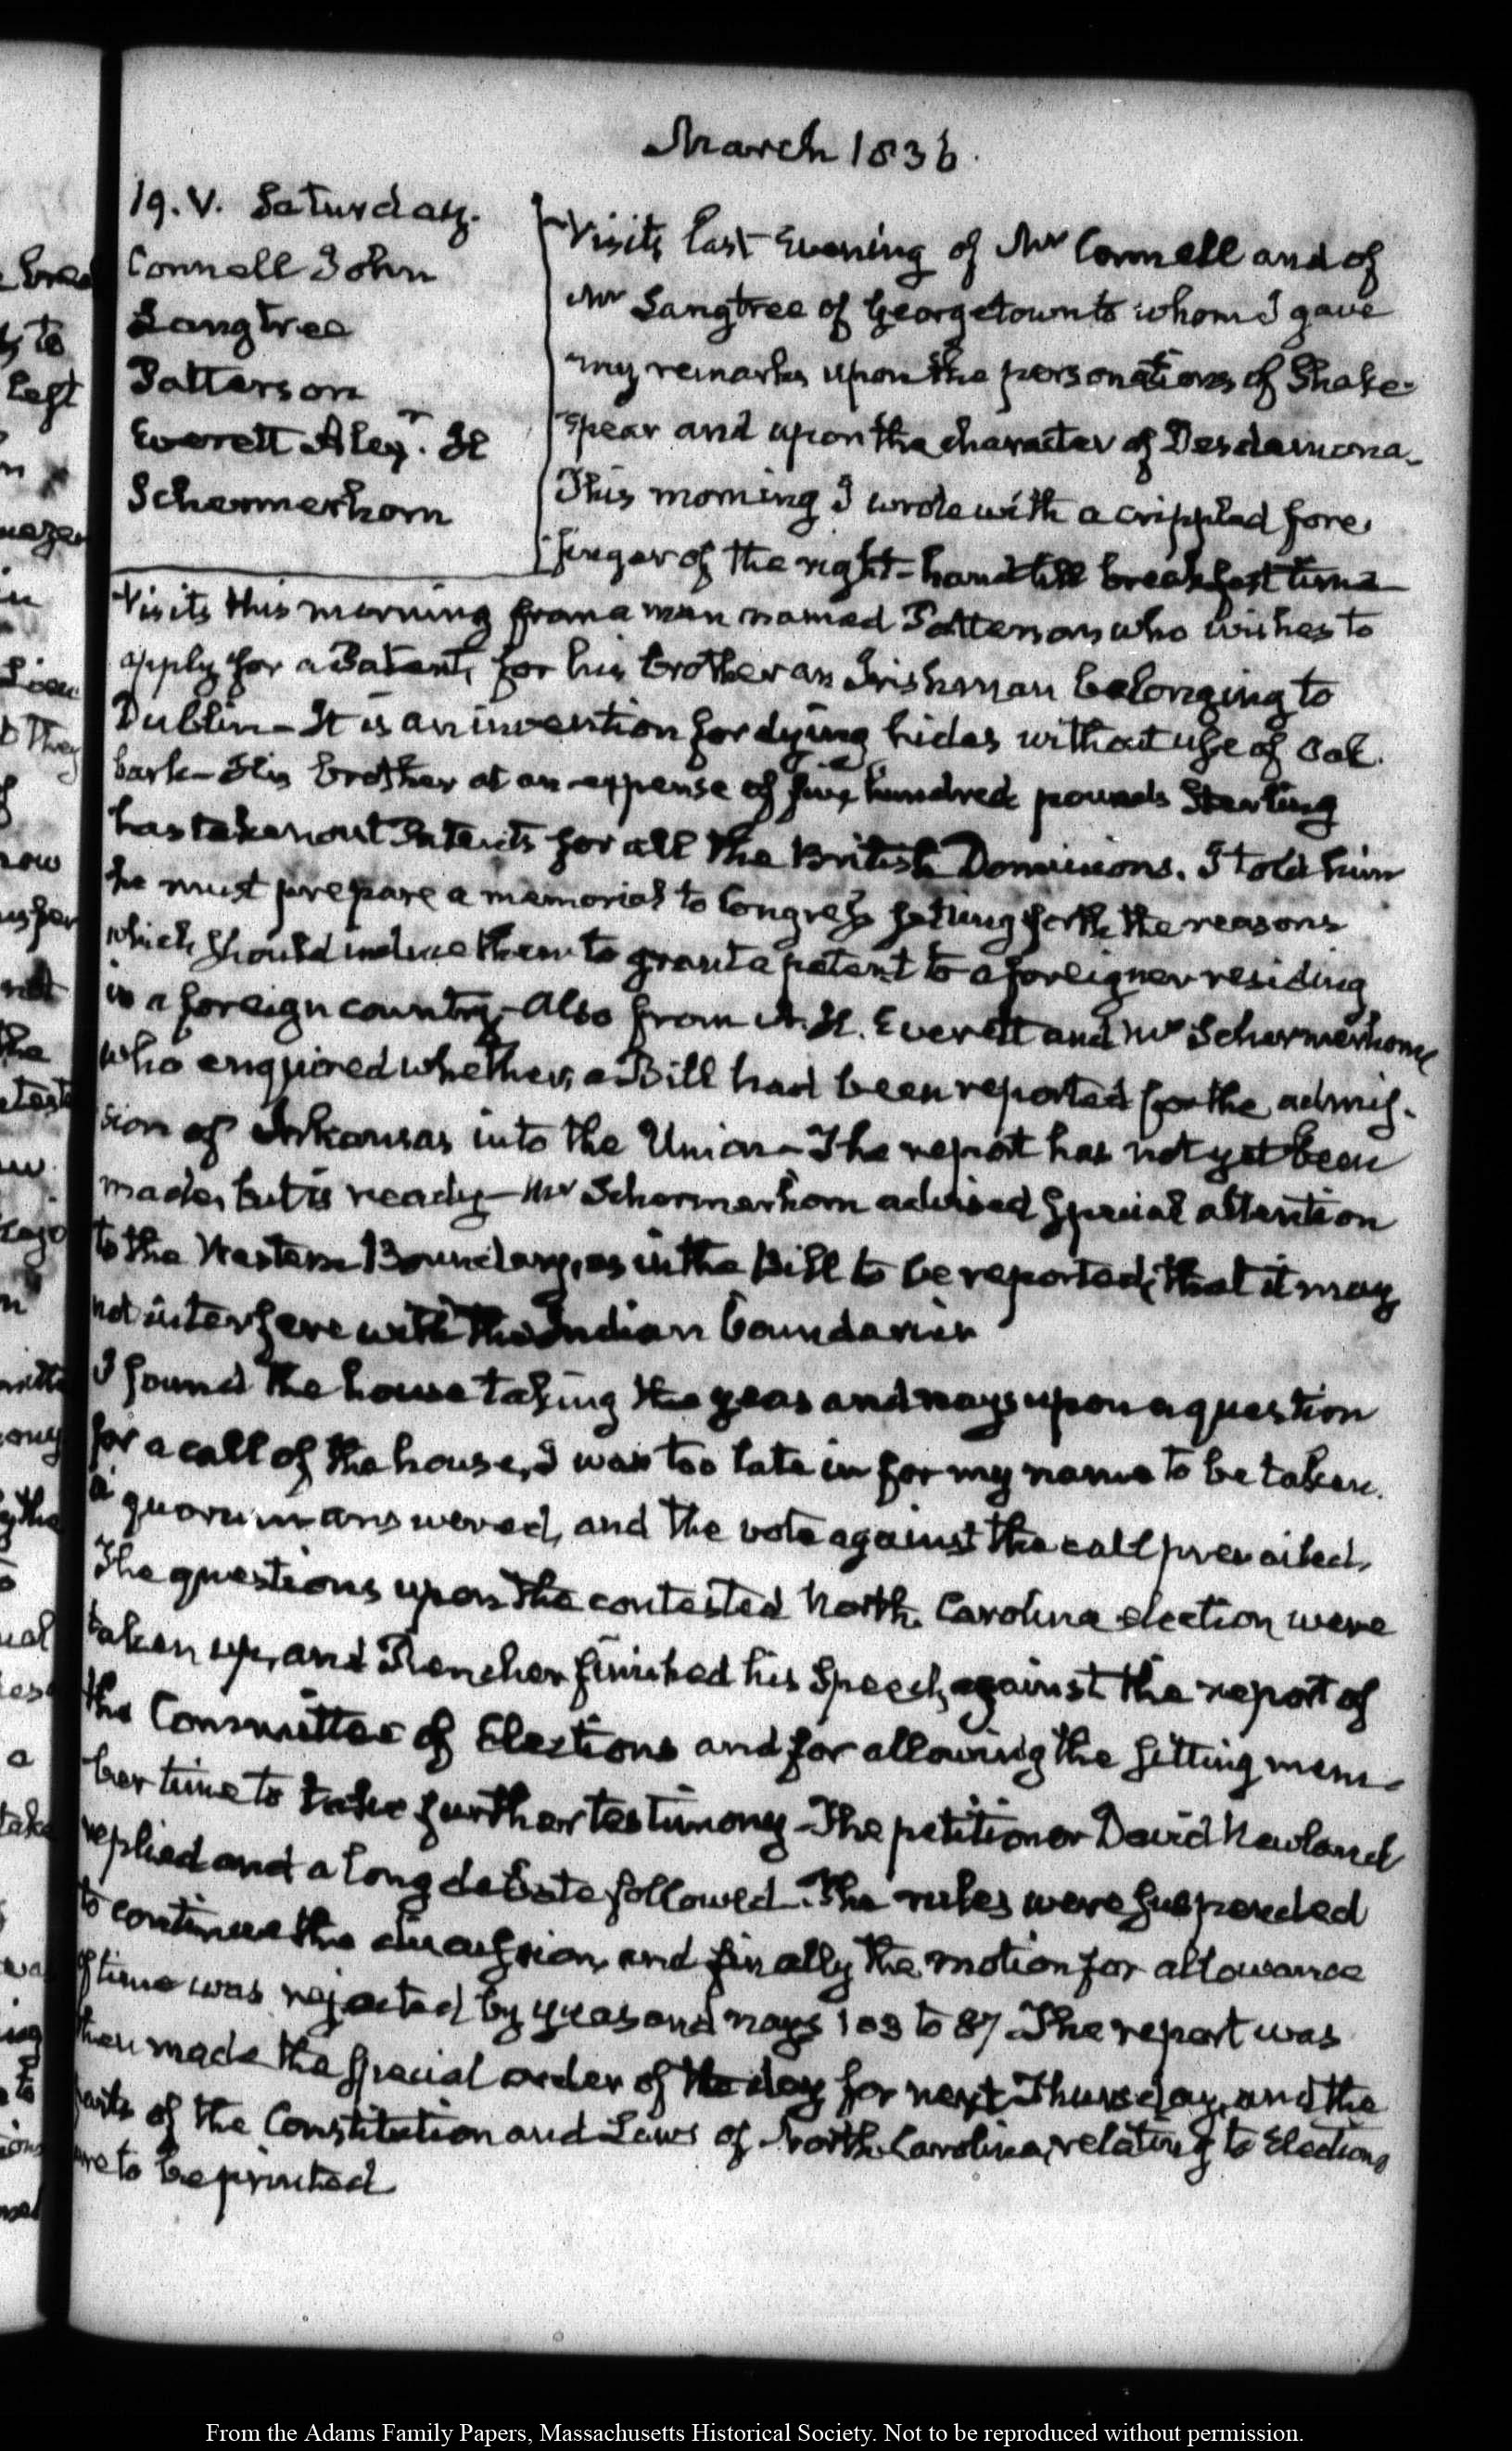 March 1836.
19. V. Saturday.
Connell John
Langtree
Patterson
Everett Alexr. H
Schermerhorn
Visits last Evening of Mr Connell and of
Mr Langtree of Georgetown to whom I gave
my remarks upon the personations of Shake-
spear and upon the character of Desdamona-
This morning I wrote with a crippled fore-
finger of the right-hand till breakfast time-
Visits this morning from a man named Patterson who wishes to
apply for a Patent, for his brother an Irishman belonging to
Dublin- It is an invention for dying hides without use of Oak
bark- His brother at an expense of five hundred pounds Sterling
has taken out Patents for all the British Dominions. I told him
he must prepare a memorial to Congress setting forth the reasons
which should induce them to grant a patent to a foreigner residing
in a foreign country- Also from A. H. Everett and Mr Schermerhorn
who enquired whether a Bill had been reported for the admis-
sion of Arkansas into the Union- The report has not yet been
made, but is ready- Mr Schermerhorn advised special attention
to the Western Boundary, as in the Bill to be reported, that it may
not interfere with the Indian boundaries
I found the house taking the yeas and nays upon a question
for a call of the house, I was too late in for my name to be taken.
a quorum answered, and the vote against the call prevailed,
The questions upon the contested North Carolina election were
taken up, and Rencher finished his Speech against the report of
the Committee of Elections and for allowing the sitting mem-
ber time to take further testimony- The petitioner David Newland
replied and a long debate followed. The rules were suspended
to continue the discussion, and finally the motion for allowance
of time was rejected by yeas and nays 103 to 87. The report was
then made the special order of the day for next Thursday, and the
parts of the Constitution and Laws of North Carolina, relating to Elections
are to be printed
From the Adams Family Papers, Massachusetts Historical Society. Not to be reproduced without permission.